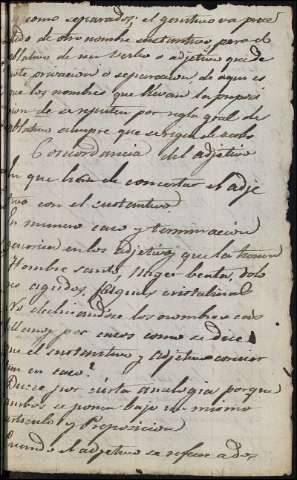 y como separados; el genitivo va prece
dido de otro nombre sustantivo pero el
ablativo de un verbo o adjetivo que de
note privacion o separacion, de aqui es
que los nombres que llevan la preposi
cion de se reputen por regla gral de
ablativo siempre que
Concordancia del adjetivo
En que han de concertar el adje
tivo con el sustantivo
En numero caso y terminacion
generica en los adjetivos que la tienen
Hombre santo, Muger beata, dolo
res agudos, cristalinas
No declinandose los nombres cas
tellanos por casos como se dice
que el sustantivo y adjetivo concier
tan en caso?
Dicese por cierta analogia porque
ambos se ponen bajo un mismo
articulo y preposicion
Cuando el adjetivo se refiere a dos